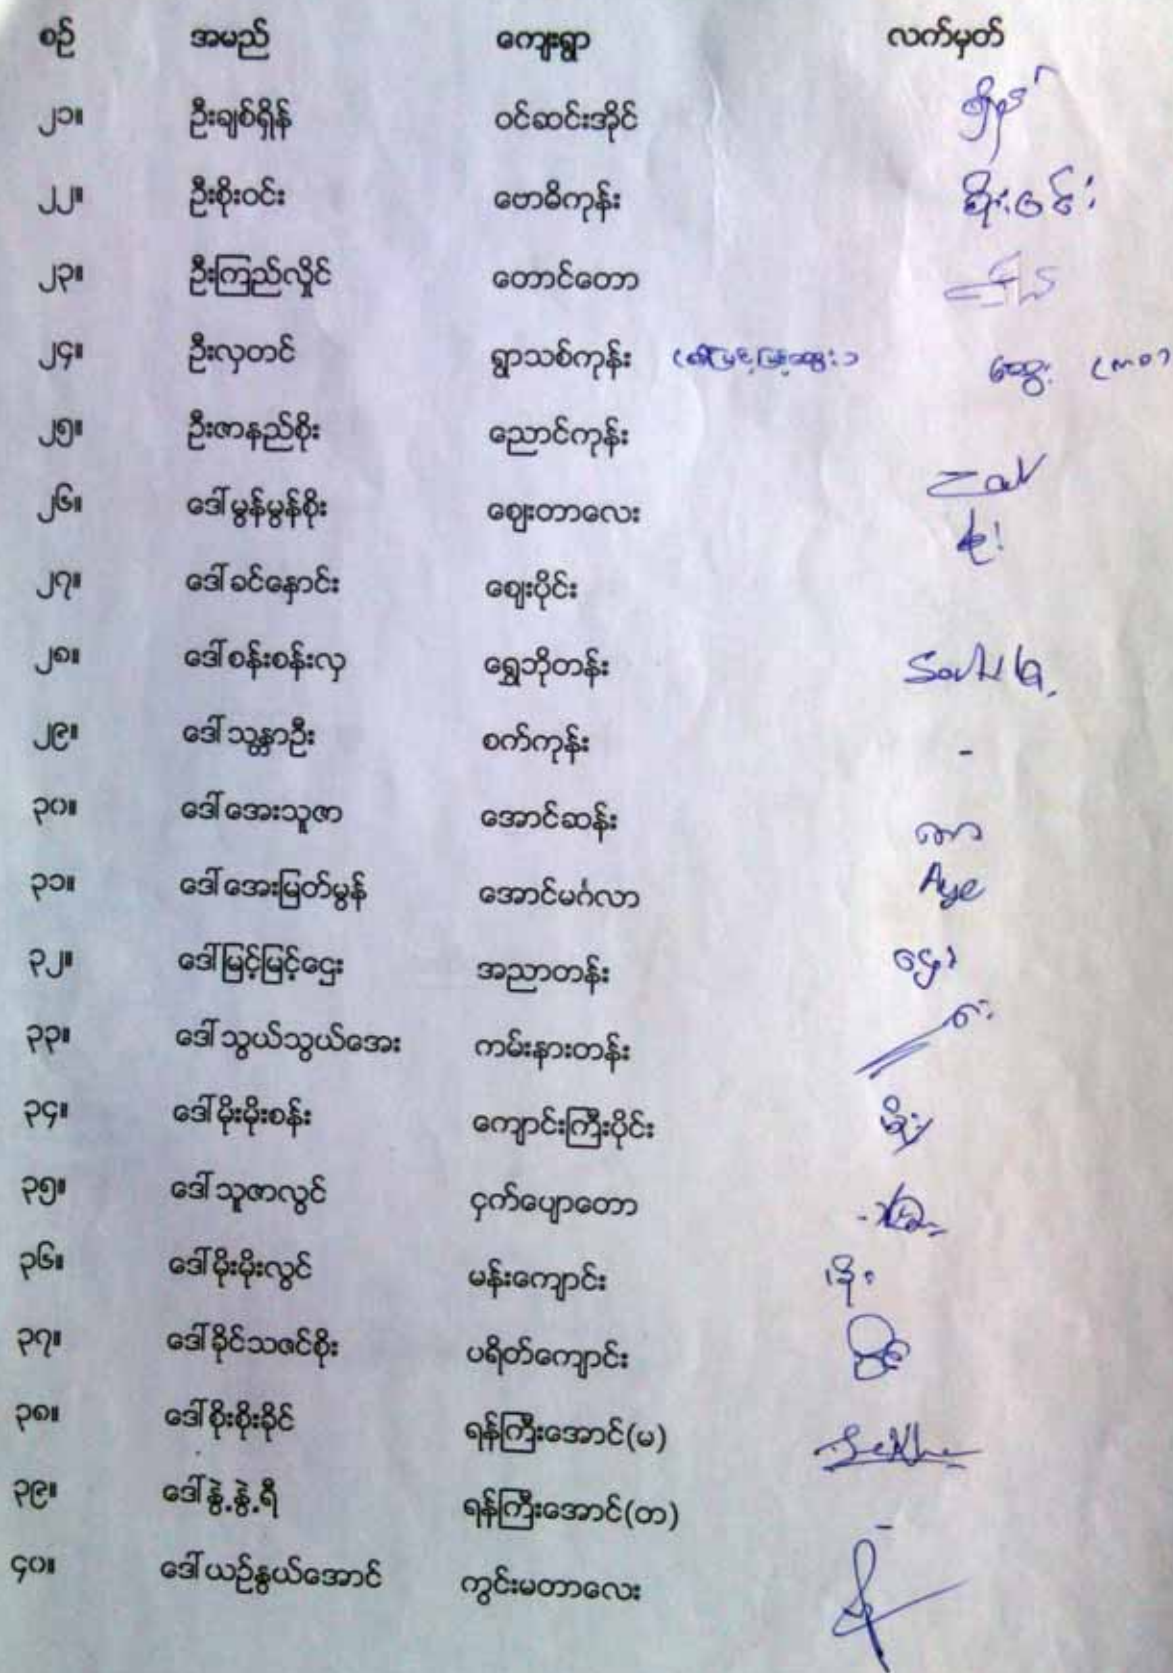 စဉ် အမည် ကျေးရွာ လက်မှတ်
၂၁။ ဦးချစ်ရှိန် ဝင်ဆင်းအိုင် ရှိန်
၂၂။ ဦးစိုးဝင်း ဗောဓိကုန်း စိုးဝင်း
၂၃။ ဦးကြည်လှိုင် တောင်တော
၂၄။ ဦးလှတင် ရွာသစ်ကုန်း
၂၅။ ဦးဇာနည်စိုး ညောင်ကုန်း
၂၆။ ဒေါ်မွန်မွန်စိုး ဈေးတာလေး
၂၇။ ဒေါ်ခင်နှောင်း ဈေးပိုင်း
၂၈။ ဒေါ်စန်းစန်းလှ ရွှေဘိုတန်း
၂၉။ ဒေါ်သန္တာဦး စက်ကုန်း -
၃၀။ ဒေါ်အေးသူဇာ အောင်ဆန်း
၃၁။ ဒေါ်အေးမြတ်မွန် အောင်မင်္ဂလာ Aye
၃၂။ ဒေါ်မြင့်မြင့်ဌေး အညာတန်း ဌေး
၃၃။ ဒေါ်သွယ်သွယ်အေး ကမ်းနားတန်း
၃၄။ ဒေါ်မိုးမိုးစန်း ကျောင်းကြီးပိုင်း မိုး
၃၅။ ဒေါ်သူဇာလွင် ငှက်ပျောတော
၃၆။ ဒေါ်မိုးမိုးလွင် မန်းကျောင်း မိုး
၃၇။ ဒေါ်ခိုင်သဇင်စိုး ပရိတ်ကျောင်း
၃၈။ ဒေါ်စိုးစိုးခိုင် ရန်ကြီးအောင်(မ)
၃၉။ ဒေါ်နွဲ့နွဲ့ရီ ရန်ကြီးအောင်(တ) -
၄၀။ ဒေါ်ယဉ်နွယ်အောင် ကွင်းမတာလေး